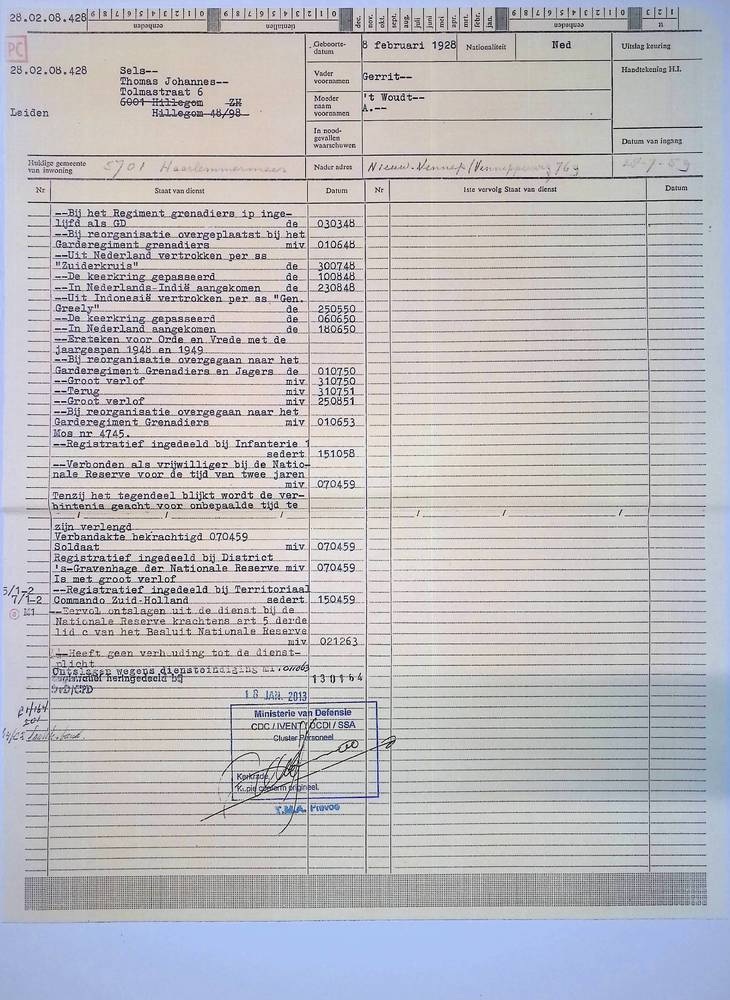 28.02.08.428
8 7 6 5 4 3 2 1 0
eenheden
tientallen
dec. nov. okt. sept. aug. juli juni mei apr. mrt. febr. jan.
eenheden
PC
28.02.08.428
Sels--
Thomas Johannes--
Tolmastraat 6
6001 Hillegom ZH
Leiden Hillegom 48/98
Geboorte-
datum
8 februari 1928
Nationaliteit
Ned
Uitslag keuring
Vader
voornamen
Gerrit--
Handtekening H.I.
Moeder
naam
voornamen
't Woudt--
A.--
In nood-
gevallen
waarschuwen
Datum van ingang
Huidige gemeente
van inwoning
5701 Haarlemmermeer
Nader adres
Nieuw-Vennep (Vennepperweg 769
28-7-59
Nr Staat van dienst Datum Nr 1ste vervolg Staat van dienst Datum
--Bij het Regiment grenadiers ip inge-
lijfd als GD de 030348
--Bij reorganisatie overgeplaatst bij het
Garderegiment grenadiers miv 010648
--Uit Nederland vertrokken per ss
"Zuiderkruis" de 300748
--De keerkring gepasseerd de 100848
--In Nederlands-Indië aangekomen de 230848
--Uit Indonesië vertrokken per ss "Gen.
Greely" de 250550
--De keerkring gepasseerd de 060650
--In Nederland aangekomen de 180650
--Ereteken voor Orde en Vrede met de
jaargespen 1948 en 1949
--Bij reorganisatie overgegaan naar het
Garderegiment Grenadiers en Jagers de 010750
--Groot verlof miv 310750
--Terug miv 310751
--Groot verlof miv 250851
--Bij reorganisatie overgegaan naar het
Garderegiment Grenadiers miv 010653
Mos nr 4745.
--Registratief ingedeeld bij Infanterie 1
sedert 151058
--Verbonden als vrijwilliger bij de Natio-
nale Reserve voor de tijd van twee jaren
miv 070459
Tenzij het tegendeel blijkt wordt de ver-
bintenis geacht voor onbepaalde tijd te
zijn verlengd
Verbandakte bekrachtigd 070459
Soldaat miv 070459
Registratief ingedeeld bij District
's-Gravenhage der Nationale Reserve miv 070459
Is met groot verlof
5/1-2 --Registratief ingedeeld bij Territoriaal
7/1-2 Commando Zuid-Holland sedert 150459
M1 --Eervol ontslagen uit de dienst bij de
Nationale Reserve krachtens art 5 derde
lid c van het Besluit Nationale Reserve
miv 021263
--Heeft geen verhouding tot de dienst-
plicht
Ontslagen wegens diensteindiging
heringedeeld bij 130164
18 JAN. 2013
Ministerie van Defensie
CDC / IVENT / OCDI / SSA
Cluster Personeel
Kerkrade,
Kopie conform origineel.
T.M.A. Prevoo